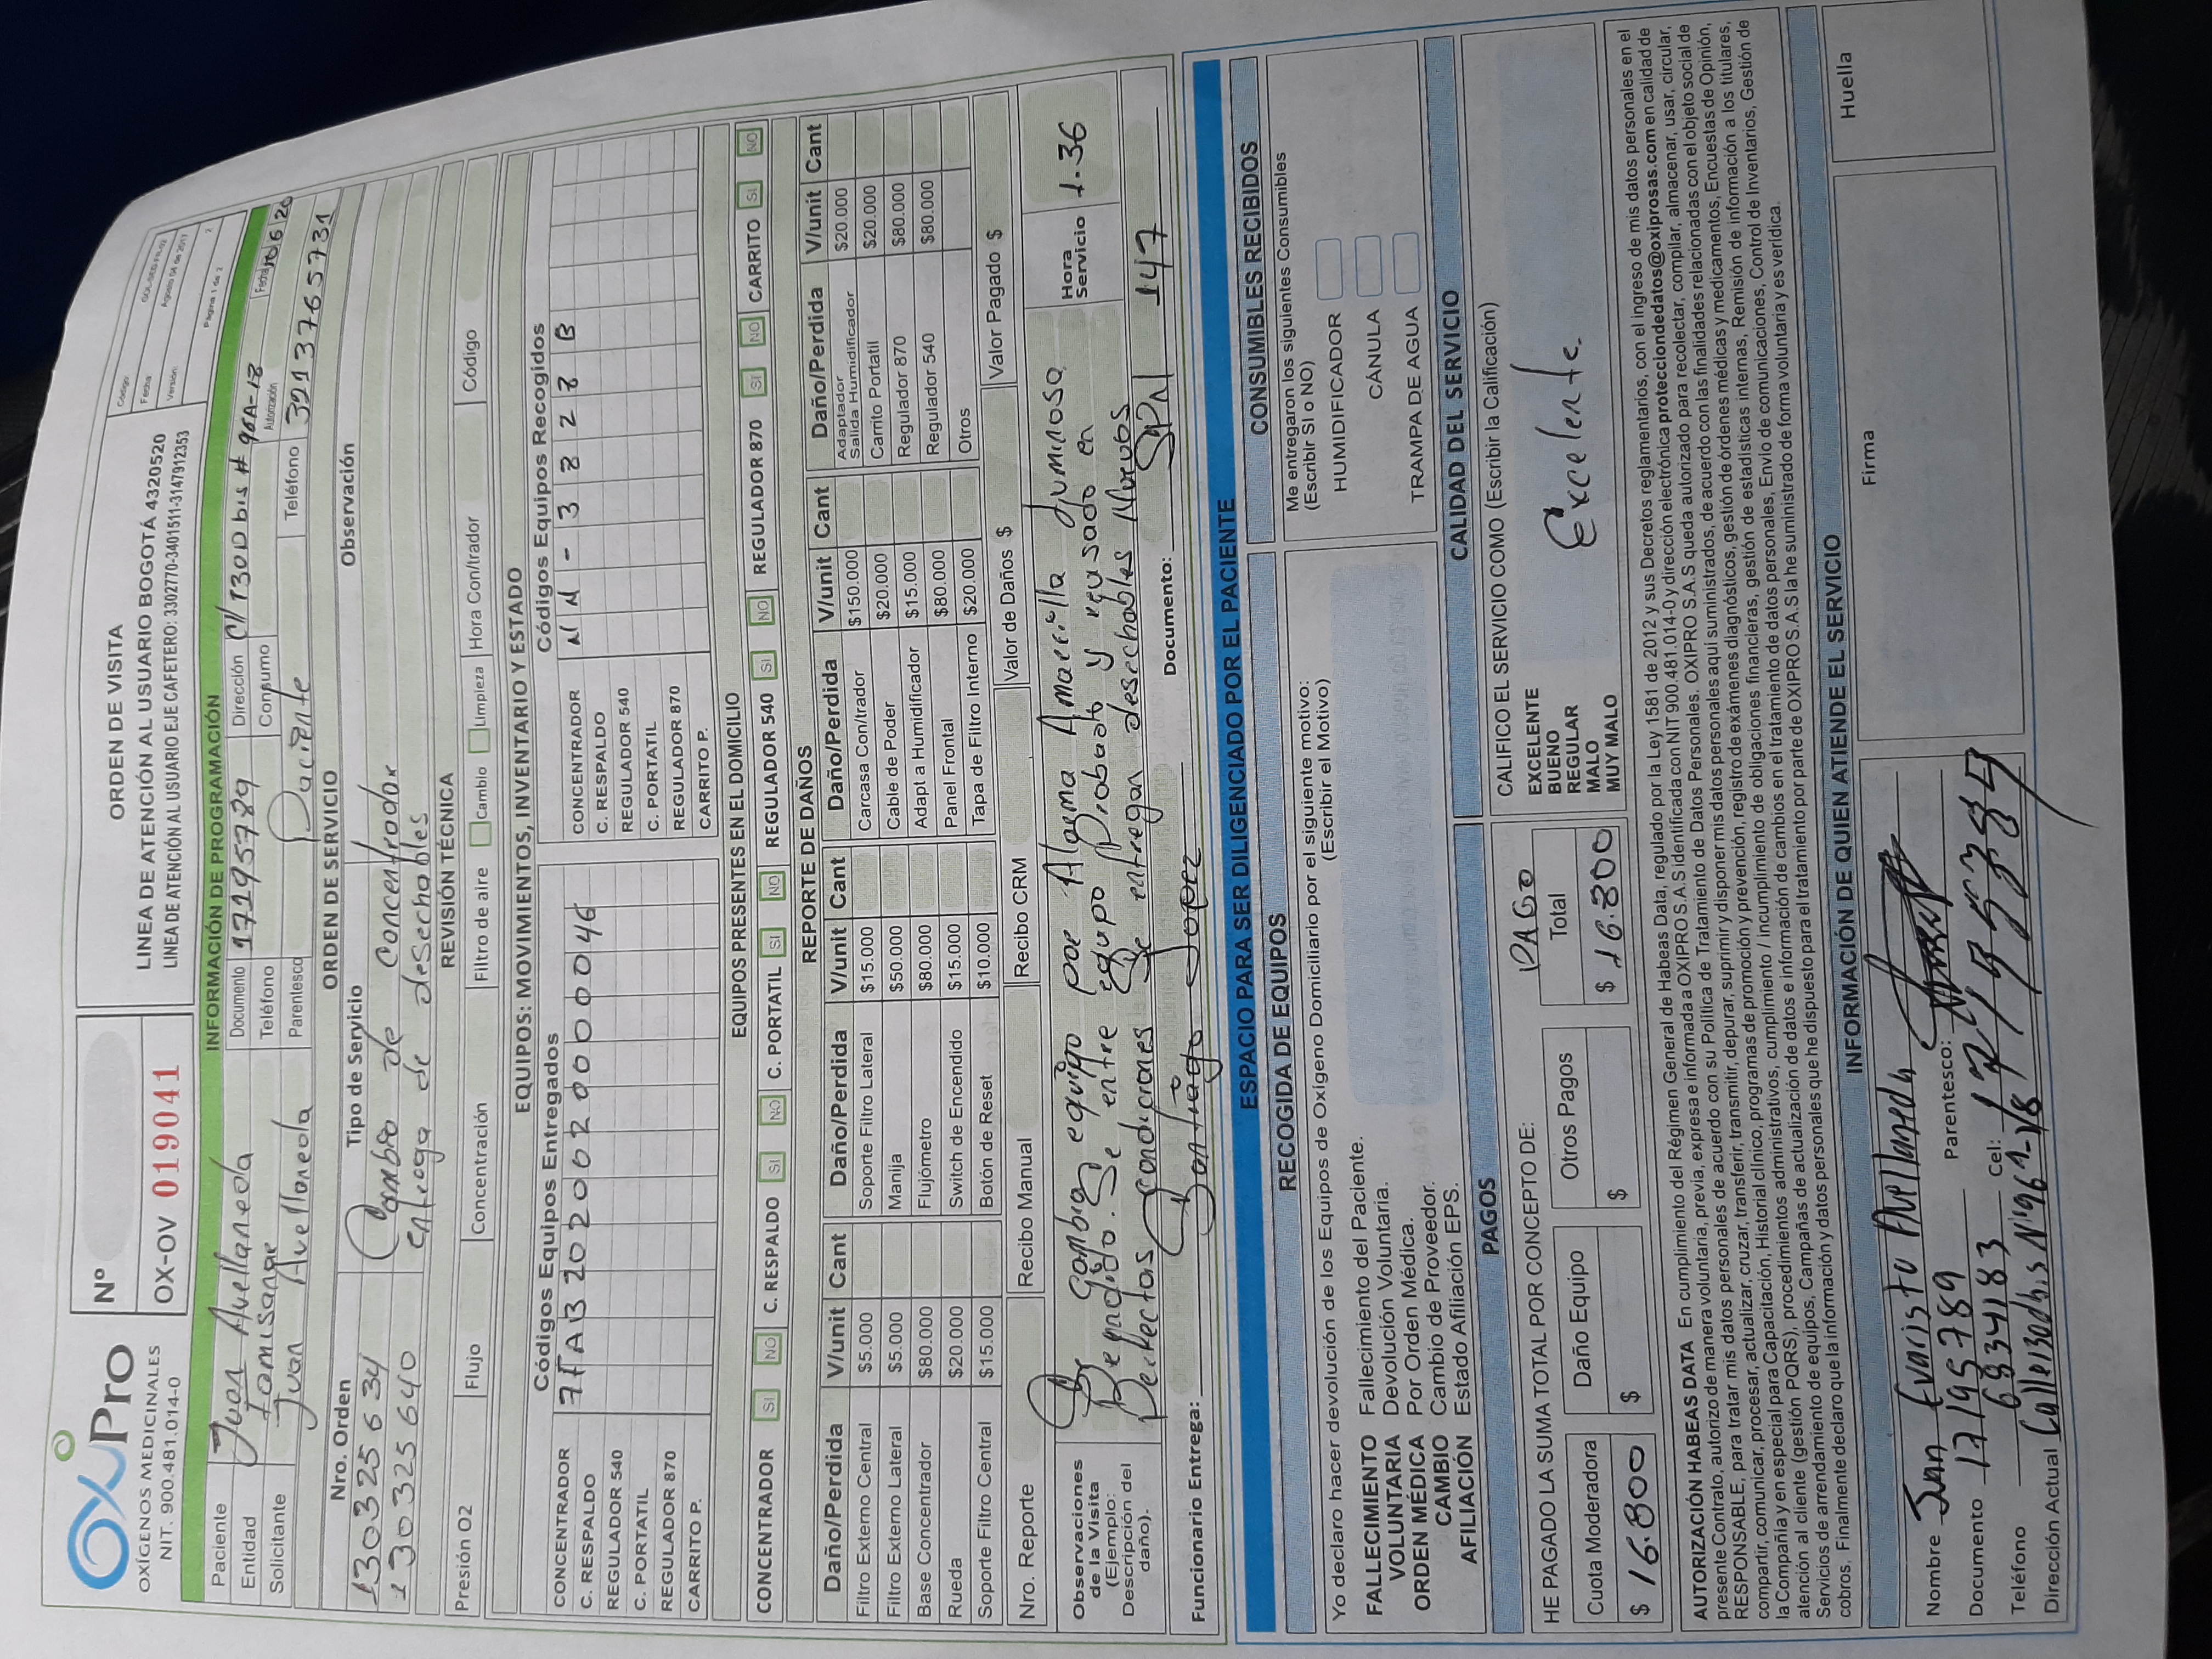 OXIPRO
OXÍGENOS MEDICINALES
NIT. 900.481.014-0
Nº
OX-OV 019041
ORDEN DE VISITA
LINEA DE ATENCIÓN AL USUARIO BOGOTÁ 4320520
LINEA DE ATENCIÓN AL USUARIO EJE CAFETERO: 3302770-3401511-3147912353
Código:
Fecha: Agosto 04 de 2017
Versión: 2
Página 1 de 2
INFORMACIÓN DE PROGRAMACIÓN
Paciente Juan Avellaneda Documento 17195789 Dirección Cl 130D bis # 96A-18
Entidad Famisanar Teléfono Consumo Autorización Fecha 10 6 20
Solicitante Juan Avellaneda Parentesco Paciente Teléfono 3213765731
ORDEN DE SERVICIO
Nro. Orden Tipo de Servicio Observación
130325634 Cambio de Concentrador
130325640 entrega de desechables
REVISIÓN TÉCNICA
Presión O2 Flujo Concentración Filtro de aire Cambio Limpieza Hora Con/trador Código
EQUIPOS: MOVIMIENTOS, INVENTARIO Y ESTADO
Códigos Equipos Entregados Códigos Equipos Recogidos
CONCENTRADOR 7FAB202062000046 CONCENTRADOR
C. RESPALDO C. RESPALDO
REGULADOR 540 REGULADOR 540
C. PORTATIL C. PORTATIL
REGULADOR 870 REGULADOR 870
CARRITO P. CARRITO P.
EQUIPOS PRESENTES EN EL DOMICILIO
CONCENTRADOR SI NO C. RESPALDO SI NO C. PORTATIL SI NO REGULADOR 540 SI NO REGULADOR 870 SI NO CARRITO SI NO
REPORTE DE DAÑOS
Daño/Perdida V/unit Cant Daño/Perdida V/unit Cant Daño/Perdida V/unit Cant Daño/Perdida V/unit Cant
Filtro Externo Central $5.000 Soporte Filtro Lateral $15.000 Carcasa Con/trador $150.000 Adaptador Salida Humidificador $20.000
Filtro Externo Lateral $5.000 Manija $50.000 Cable de Poder $20.000 Carrito Portatil $20.000
Base Concentrador $80.000 Flujómetro $80.000 Adapt a Humidificador $15.000 Regulador 870 $80.000
Rueda $20.000 Switch de Encendido $15.000 Panel Frontal $80.000 Regulador 540 $80.000
Soporte Filtro Central $15.000 Botón de Reset $10.000 Tapa de Filtro Interno $20.000 Otros
Nro. Reporte Recibo Manual Recibo CRM Valor de Daños $ Valor Pagado $
Observaciones de la Visita (Ejemplo: Descripción del daño).
Se Cambia equipo por Alarma Amarilla luminosa
Se entre equipo Probado y revsado en
Perfectas condiciones Se entregan desechables Nuevos
Hora Servicio 1:36
Funcionario Entrega: Santiago Lopez Documento: 147
ESPACIO PARA SER DILIGENCIADO POR EL PACIENTE
RECOGIDA DE EQUIPOS
Yo declaro hacer devolución de los Equipos de Oxígeno Domiciliario por el siguiente motivo:
(Escribir el Motivo)
FALLECIMIENTO Fallecimiento del Paciente.
VOLUNTARIA Devolución Voluntaria.
ORDEN MÉDICA Por Orden Médica.
CAMBIO Cambio de Proveedor.
AFILIACIÓN Estado Afiliación EPS.
CONSUMIBLES RECIBIDOS
Me entregaron los siguientes Consumibles
(Escribir SI o NO)
HUMIDIFICADOR
CÁNULA
TRAMPA DE AGUA
PAGOS
HE PAGADO LA SUMA TOTAL POR CONCEPTO DE: PAGO
Cuota Moderadora Daño Equipo Otros Pagos Total
$ 16.800 $ $ $ 16.800
CALIDAD DEL SERVICIO
CALIFICO EL SERVICIO COMO (Escribir la Calificación)
EXCELENTE
BUENO
REGULAR
MALO
MUY MALO
Excelente.
AUTORIZACIÓN HABEAS DATA En cumplimiento del Régimen General de Habeas Data, regulado por la Ley 1581 de 2012 y sus Decretos reglamentarios, con el ingreso de mis datos personales en el
presente Contrato, autorizo de manera voluntaria, previa, expresa e informada a OXIPRO S.A.S identificada con NIT 900.481.014-0 y dirección electrónica protecciondedatos@oxiprosas.com en calidad de
RESPONSABLE, para tratar mis datos personales de acuerdo con su Política de Tratamiento de Datos Personales. OXIPRO S.A.S queda autorizado para recolectar, compilar, almacenar, usar, circular,
compartir, comunicar, procesar, actualizar, cruzar, transferir, transmitir, depurar, suprimir y disponer mis datos personales aquí suministrados, de acuerdo con las finalidades relacionadas con el objeto social de
la Compañía y en especial para Capacitación, Historial clínico, programas de promoción y prevención, registro de exámenes diagnósticos, gestión de órdenes médicas y medicamentos, Encuestas de Opinión,
atención al cliente (gestión PQRS), procedimientos administrativos, cumplimiento / incumplimiento de obligaciones financieras, gestión de estadísticas internas, Remisión de información a los titulares,
Servicios de arrendamiento de equipos, Campañas de actualización de datos e información de cambios en el tratamiento de datos personales, Envío de comunicaciones, Control de Inventarios, Gestión de
cobros. Finalmente declaro que la información y datos personales que he dispuesto para el tratamiento por parte de OXIPRO S.A.S la he suministrado de forma voluntaria y es verídica.
INFORMACIÓN DE QUIEN ATIENDE EL SERVICIO
Nombre Juan Evaristo Avellaneda
Documento 17195789 Parentesco:
Teléfono 6834183 Cel:
Dirección Actual Calle 130dbis Nº 96A-18
Firma
Huella